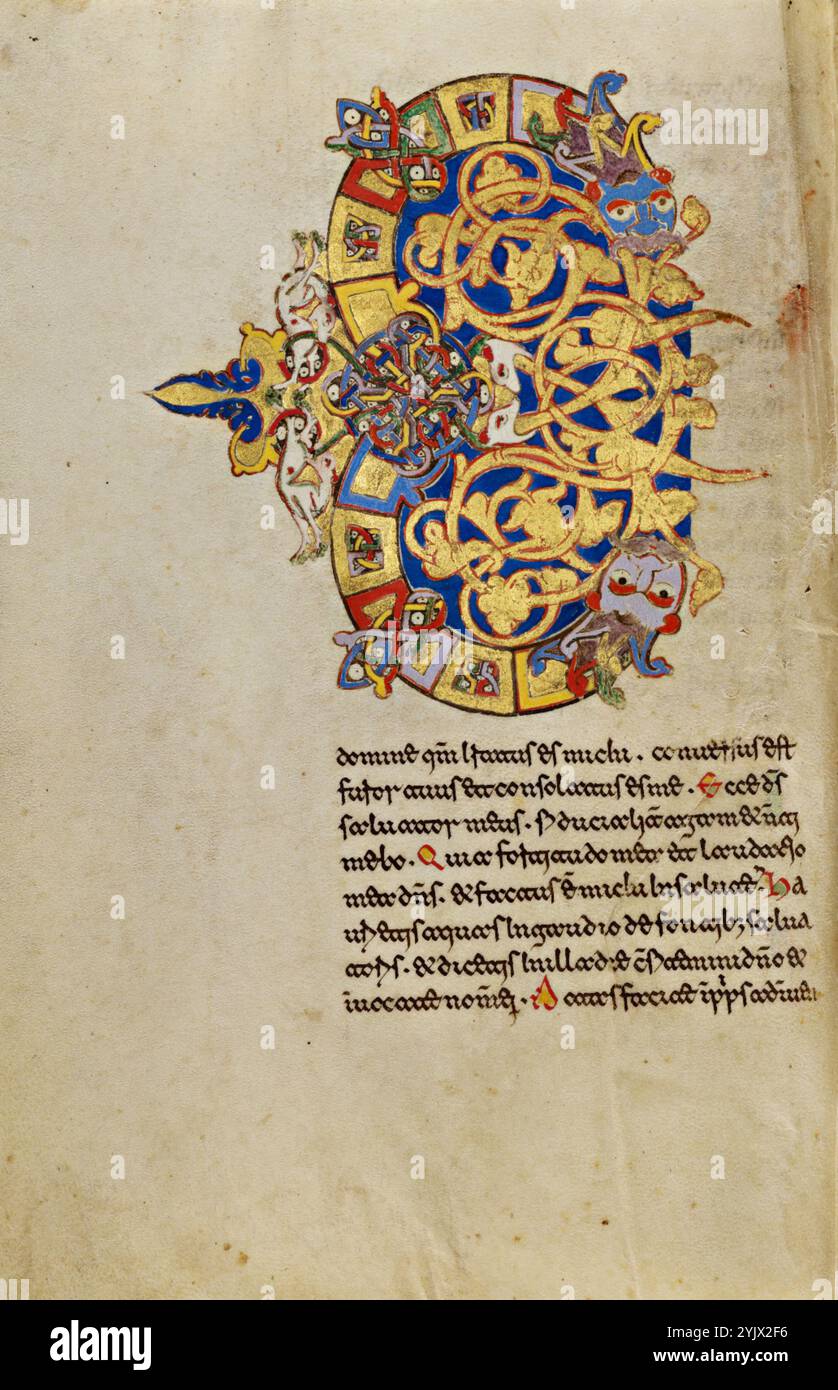 domine qm̄ Iratus es michi . conuersus est
furor tuus et consolatus es me . Ecce d̄s
saluator meus . fiducialit̄ agam et n̄ ti
mebo . Quia fortitudo mea et laudatio
mea dn̄s . et factus ē michi In salutē . Ha
urietis aquas In gaudio de fontib; salua
toris . et dicetis In illa die cf̄itemini dn̄o et
Inuocate nom̄ ei . Notas facite In pp̄s adinuen
alamy
Image ID: 2YJX2F6
www.alamy.com